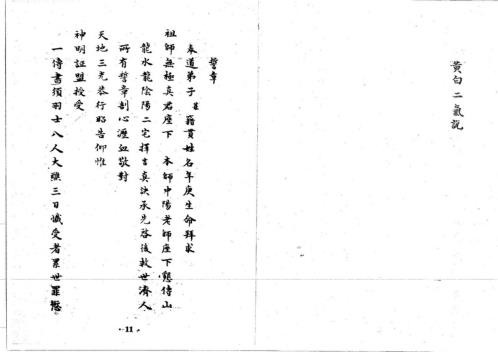 黃白二氣說
誓章
奉道弟子某籍貫姓名年庚生命拜求
祖師無極真君座下 本師中陽老師座下懇傳山
龍水龍陰陽二宅擇吉真訣承先啓後救世濟人
所有誓章剖心瀝血敬對
天地三光恭行昭告仰惟
神明証盟授受
一傳書須羽士八人大醮三日懺受者累世罪愆
-11-